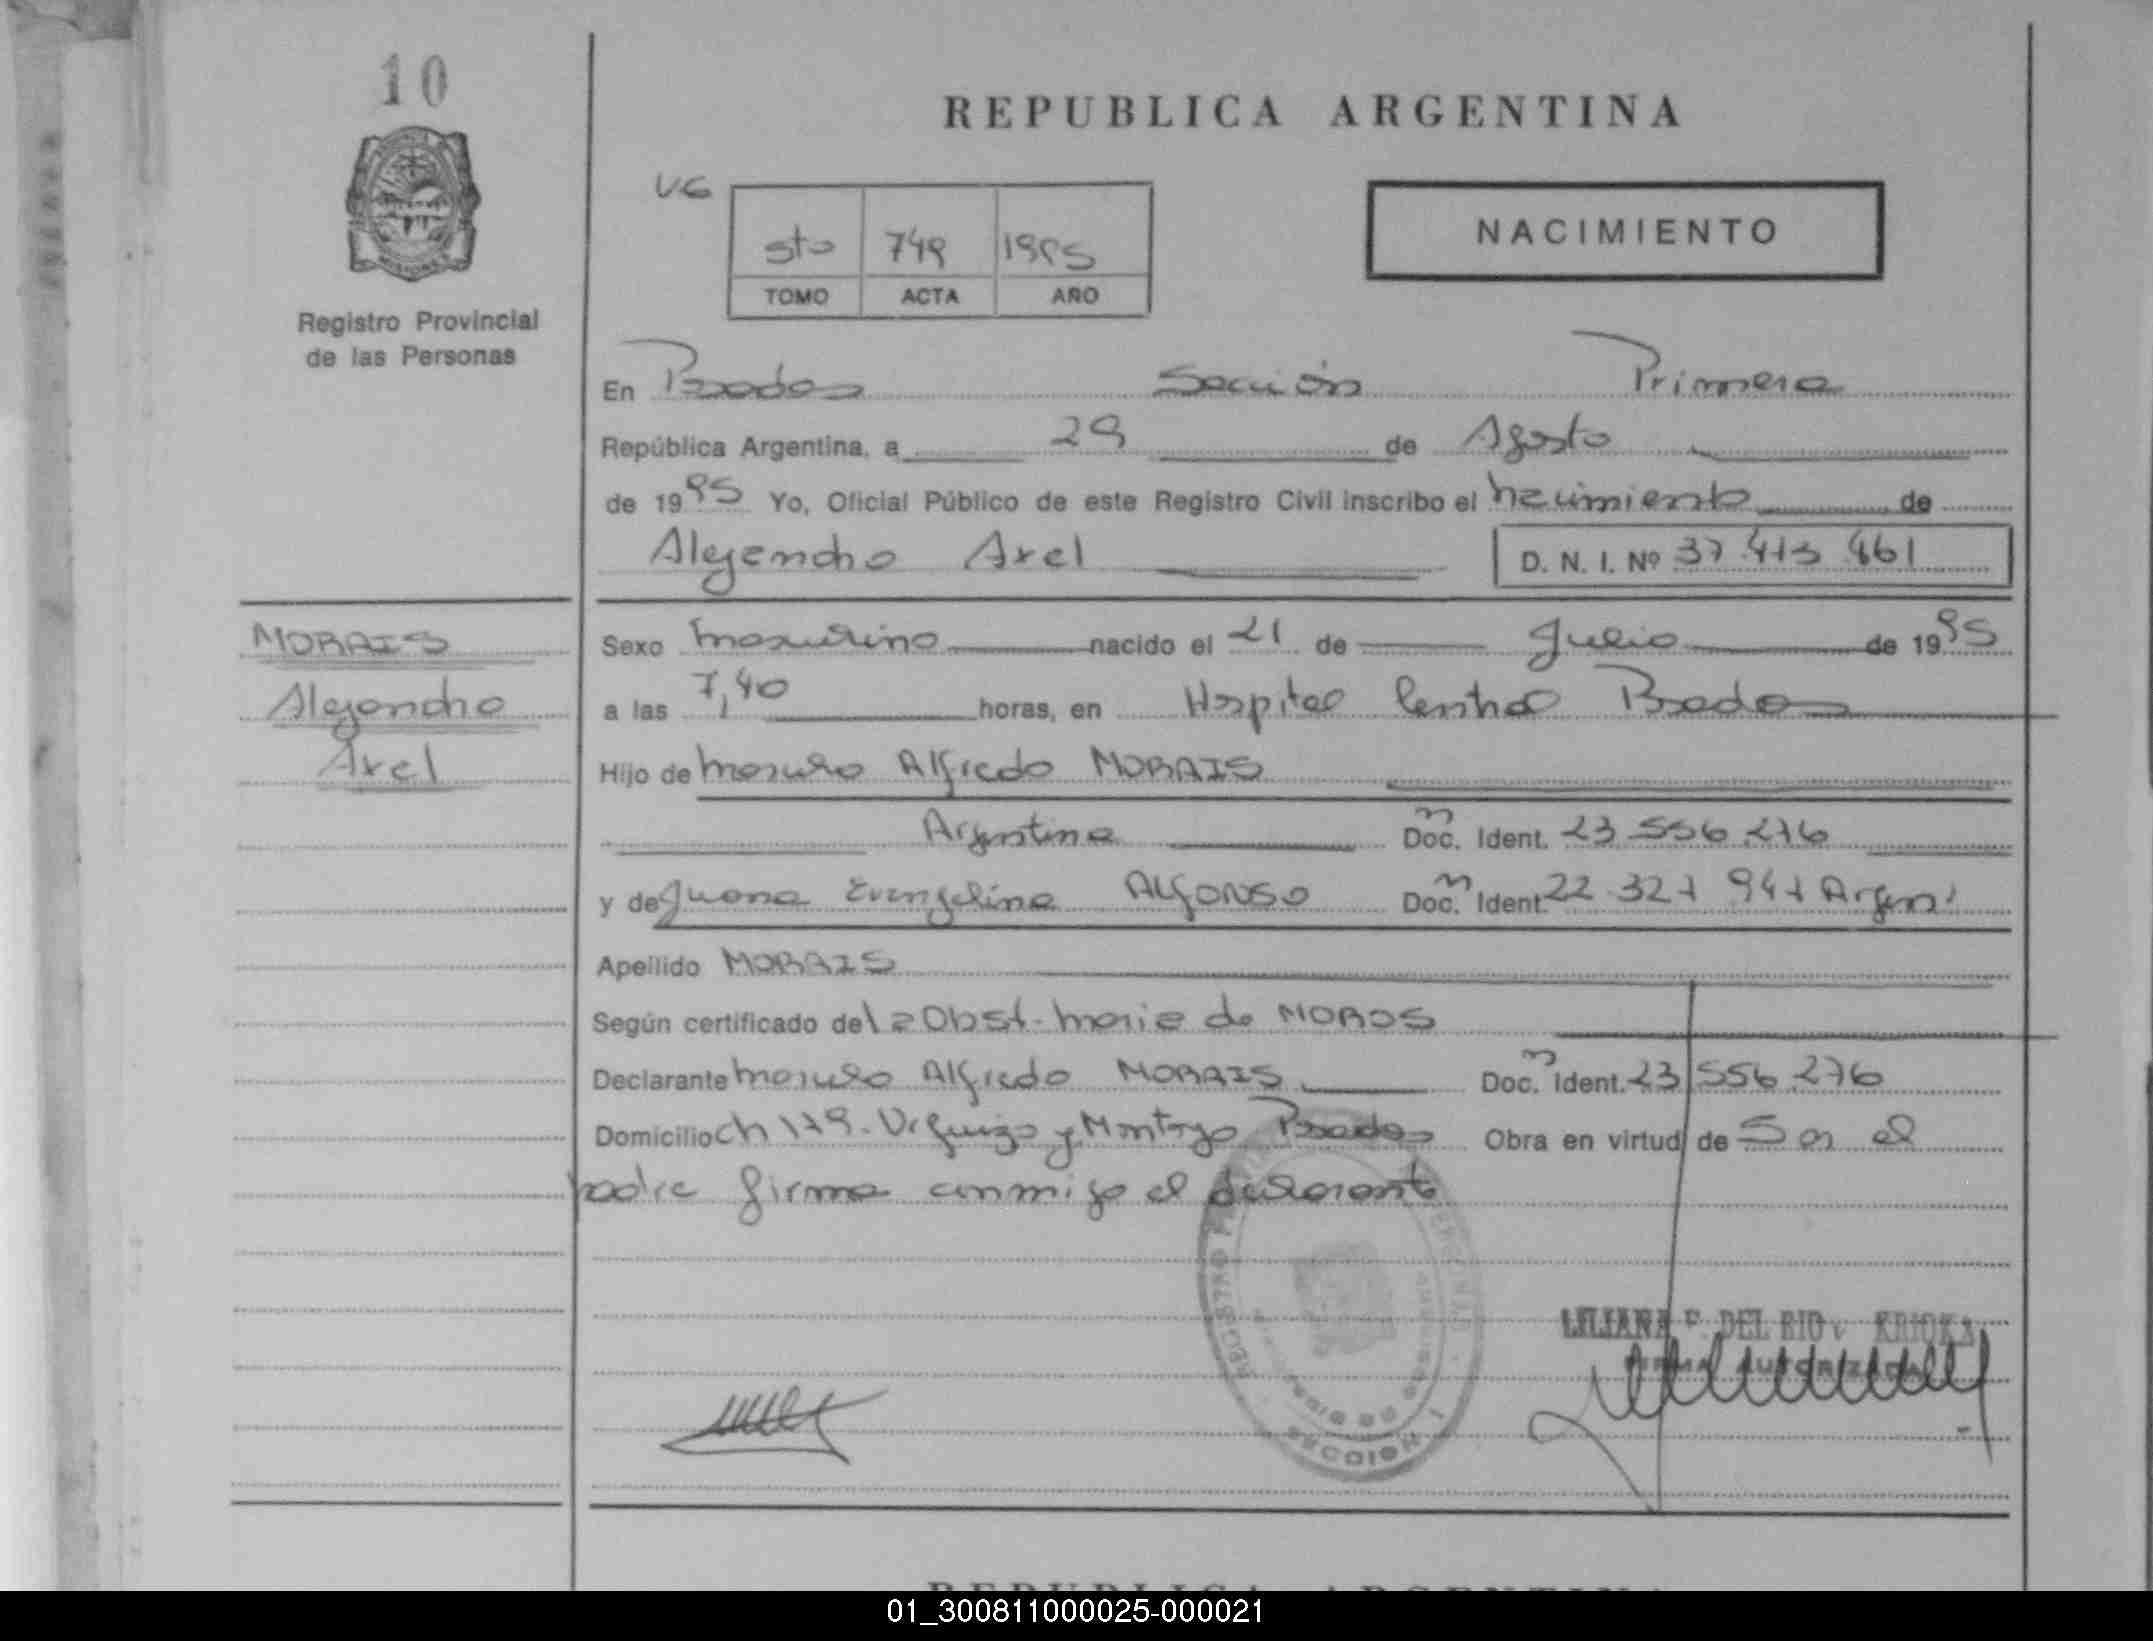 10
REPUBLICA ARGENTINA
VG
5to 749 1995
TOMO ACTA AÑO
NACIMIENTO
Registro Provincial
de las Personas
En Posadas Sección Primera
República Argentina, a 29 de Agosto
de 1995 Yo, Oficial Público de este Registro Civil inscribo el nacimiento de
Alejandro Axel D. N. I. Nº 37.413.461
MORAIS
Alejandro
Axel
Sexo masculino nacido el 21 de Julio de 1995
a las 7,40 horas, en Hospital Central Posadas
Hijo de Alfredo MORAIS
Argentina Doc. Ident. 23.556.276
y de Juana Evangelina ALFONSO Doc. Ident. 22.327.947 Argen
Apellido MORAIS
Según certificado de la Obst. Maria de MOROS
Declarante Alfredo MORAIS Doc. Ident. 23.556.276
Domicilio Ch 179. Urquiza y Montoya Posadas Obra en virtud de Ser el
padre firma conmigo el declarante
LILIANA F. DEL RIO KRIOKA
FIRMA AUTORIZADA
SECCION 1
REPUBLICA ARGENTINA
01_300811000025-000021